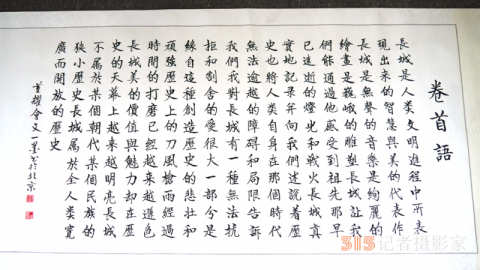 卷首語
長城是人类文明進程中所表
現出来的智慧與美的代表作
長城是無聲的音樂是絢麗的
繪畫是巍峨的雕塑長城讓我
們能通過他感受到祖先那早
已逝的燈光和戰火長城真
實地記录并向我們述說着歷
史也將人类自身在那個時代
無法逾越的障碍和局限告訴
我們我對長城有一種無法抗
拒和割舍的愛很大一部分是
緣自這種創造歷史的悲壮和
頑强歷史上的刀風槍雨經過
時間的打磨已經越来越遜色
長城美的價值與魅力却在歷
史的天幕上越来越明亮長城
不属於某個朝代某個民族的
狹小歷史長城属於全人类寬
廣而開放的歷史
董耀會文 書於北京
315记者摄影家